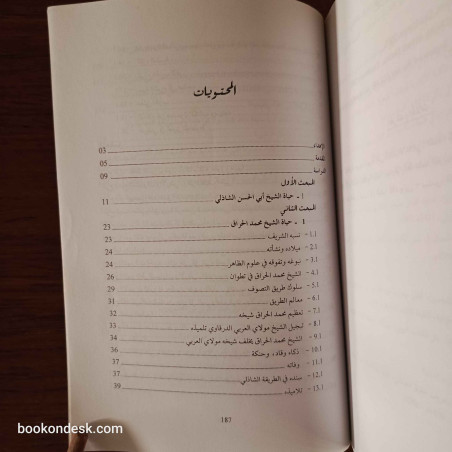 المحتويات
الإهداء 03
المقدمة 05
الدراسة 09
المبحث الأول
I - حياة الشيخ أبي الحسن الشاذلي 11
المبحث الثاني
I - حياة الشيخ محمد الحراق 23
1.1 - نسبه الشريف 23
2.1 - ميلاده ونشأته 24
3.1 - نبوغه وتفوقه في علوم الظاهر 24
4.1 - الشيخ محمد الحراق في تطوان 26
5.1 - سلوك طريق التصوف 29
6.1 - معالم الطريق 31
7.1 - تعظيم محمد الحراق شيخه 32
8.1 - تبجيل الشيخ مولاي العربي الدرقاوي تلميذه 33
9.1 - الشيخ محمد الحراق يخلف شيخه مولاي العربي 34
10.1 - ذكاء وقاد، وحنكة 36
11.1 - وفاته 37
12.1 - سنده في الطريقة الشاذلي 37
13.1 - تلاميذه 39
187
bookondesk.com